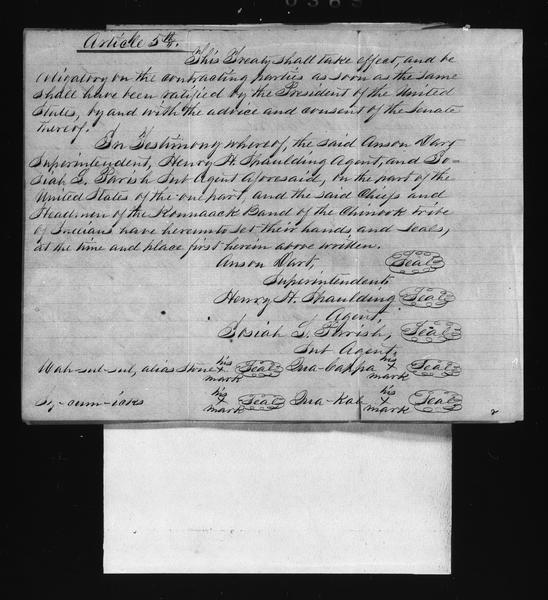 Article 5th.
This Treaty shall take effect, and be
obligatory on the contracting parties as soon as the same
shall have been ratified by the President of the United
States, by and with the advice and consent of the Senate
thereof.
In Testimony whereof, the said Anson Dart
Superintendent, Henry H. Spaulding Agent, and Jo-
siah L. Parish Sub Agent aforesaid, on the part of the
United States of the one part, and the said Chiefs and
Headmen of the Konnaack Band of the Chinook tribe
of Indians have hereunto set their hands, and Seals,
at the time and place first herein above written.
Anson Dart, Seal
Superintendent
Henry H. Spaulding Seal
Agent,
Josiah L. Parish, Seal
Sub Agent.
Wah-sut-sut, alias Stone his x mark Seal Qua-Cappa his x mark Seal
his x mark Seal Qua-Kak his x mark Seal